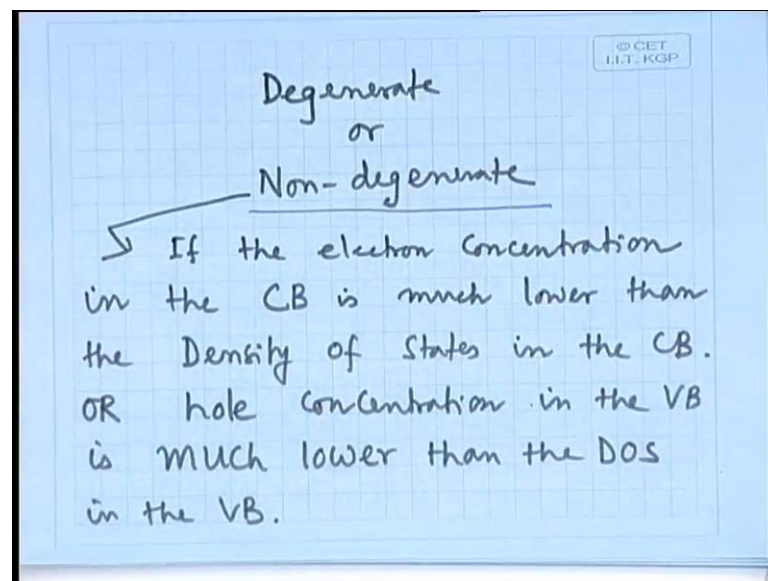 © CET
I.I.T. KGP
Degenerate
or
Non-degenerate
If the electron concentration
in the CB is much lower than
the Density of States in the CB.
OR hole concentration in the VB
is much lower than the DOS
in the VB.